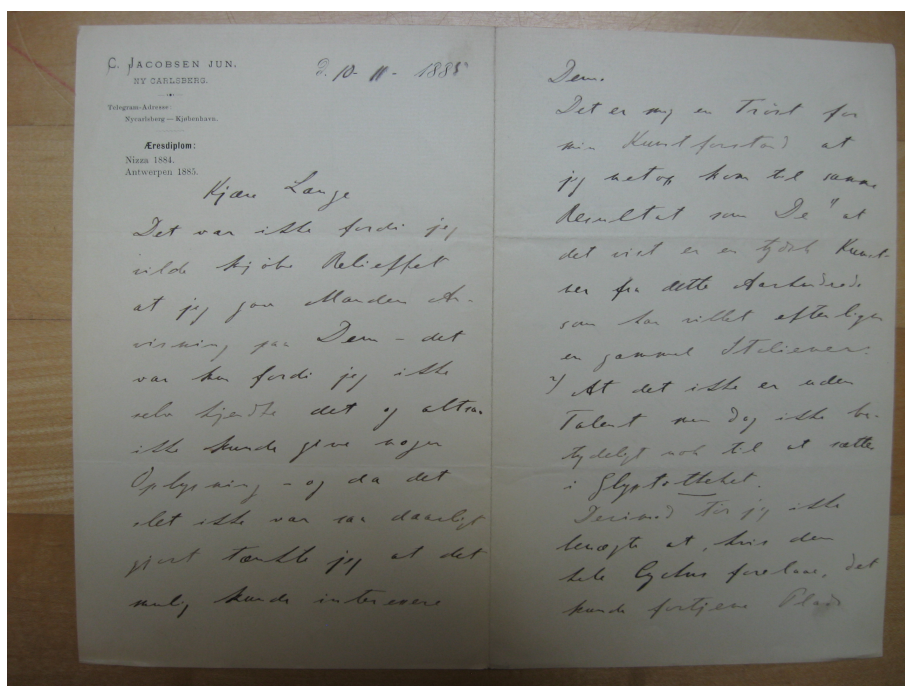 C. JACOBSEN JUN.
NY CARLSBERG.
Telegram-Adresse:
Nycarlsberg — Kjøbenhavn.
Æresdiplom:
Nizza 1884.
Antwerpen 1885.
d. 10 - 11 - 1885
Kjære Lange
Det var ikke fordi jeg
vilde kjøbe Relieffet
at jeg gav Manden An-
visning paa Dem - det
var kun fordi jeg ikke
selv kjendte det og altsaa
ikke kunde give nogen
Oplysning - og da det
slet ikke var saa daarligt
gjort tænkte jeg at det
mulig kunde interessere
Dem.
Det er mig en Trøst for
min Kunstforstand at
jeg netop kom til samme
Resultat som De 1) at
det vist er en tydsk Kunst-
ner fra dette Aarhundrede
som har villet efterligne
en gammel Italiener.
2) At det ikke er uden
Talent men dog ikke be-
tydeligt nok til at sættes
i Glyptotheket.
Derimod tør jeg ikke
benægte at, hvis den
hele Cyclus forelaae, det
kunde fortjene Plads